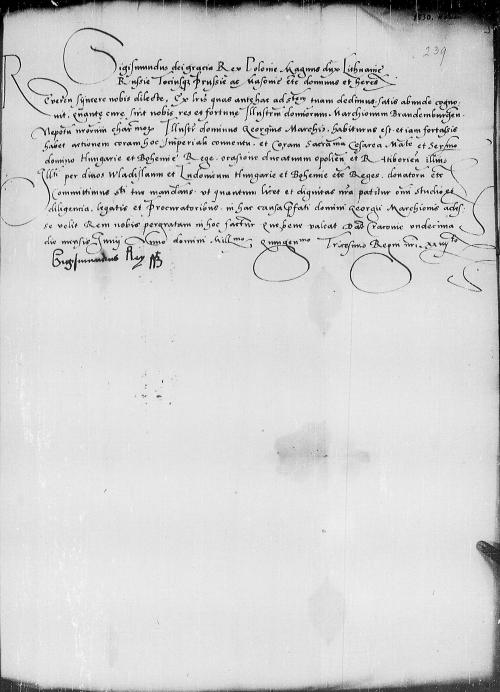 1530
239
Sigismundus dei gracia Rex Polonie Magnus dux Lithuanie
Russie Tociusq3 Prussie ac Masovie etc dominus et heres
Reveren syncere nobis dilecte, Ex lris quas antehac ad sttem tuam dedimus satis abunde cogno
vit, quante cure sint nobis res et fortune Illustrium dominorum Marchionum Brandenburgen
Nepotu nrorum charmor Illustr dominus Georgius Marchio habiturus est et iam fortassis
habet actionem coram hoc Imperiali conventu, et Coram Sacrama Cesarea Mate et Sermo
domino Hungarie et Bohemie Rege, orasione ducatuum Opolien et Ratiborien illius
Illti per divos Wladislaum et Ludovicum Hungarie et Bohemie etc Reges donatoru etc
Committimus sti tue mandans ut quantum licet et dignitas nra patitur omi studio et
diligencia legatis et Procuratoribus in hac causa pfati domini Georgii Marchionis adesse
se velit Rem nobis pergratam in hoc factur Que bene valeat Dat Cracovie undecima
die mensis Junii Anno domini Millmo Quingenmo Tricesimo Regni nri XXIIIIto
Sigismundus Rex sst